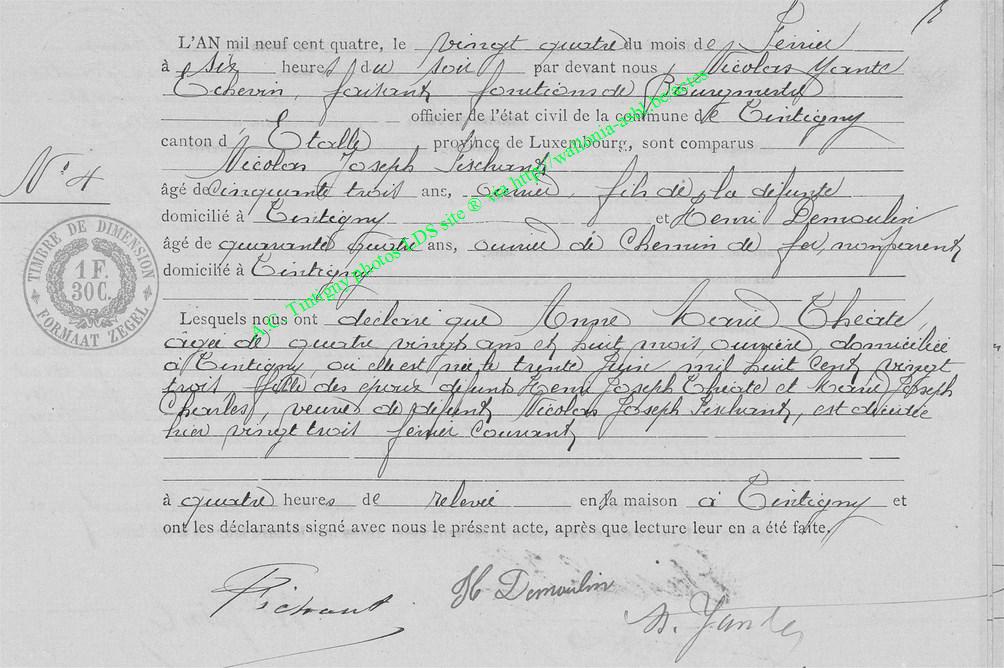 L'AN mil neuf cent quatre, le vingt quatre du mois de Fevrier
à six heures du soir par devant nous Nicolas Yante
Echevin, faisant fonctions de Bourgmestre
officier de l'état civil de la commune de Tintigny
canton d'Etalle province de Luxembourg, sont comparus
Nicolas Joseph Pischant
âgé de cinquante trois ans, ouvrier, fils de la défunte
N° 4
domicilié à Tintigny et Henri Demoulin
âgé de quarante quatre ans, ouvrier de chemin de fer, non parent
domicilié à Tintigny
TIMBRE DE DIMENSION
1 F.
30 C.
FORMAAT ZEGEL
A.C. Tintigny photos LDS site ® via http://wallonia-asbl.be/actes
Lesquels nous ont declaré que Anne Marie Théate
agée de quatre vingt ans et huit mois, ouvrière, domiciliée
à Tintigny, où elle est née le trente Juin mil huit cent vingt
trois fille des époux défunts Henri Joseph Théate et Marie Joseph
Charles, veuve de défunt Nicolas Joseph Pischant, est décédée
hier vingt trois fevrier courant
à quatre heures de relevée en sa maison à Tintigny et
ont les déclarants signé avec nous le présent acte, après que lecture leur en a été faite.
Pichant H Demoulin N. Yante